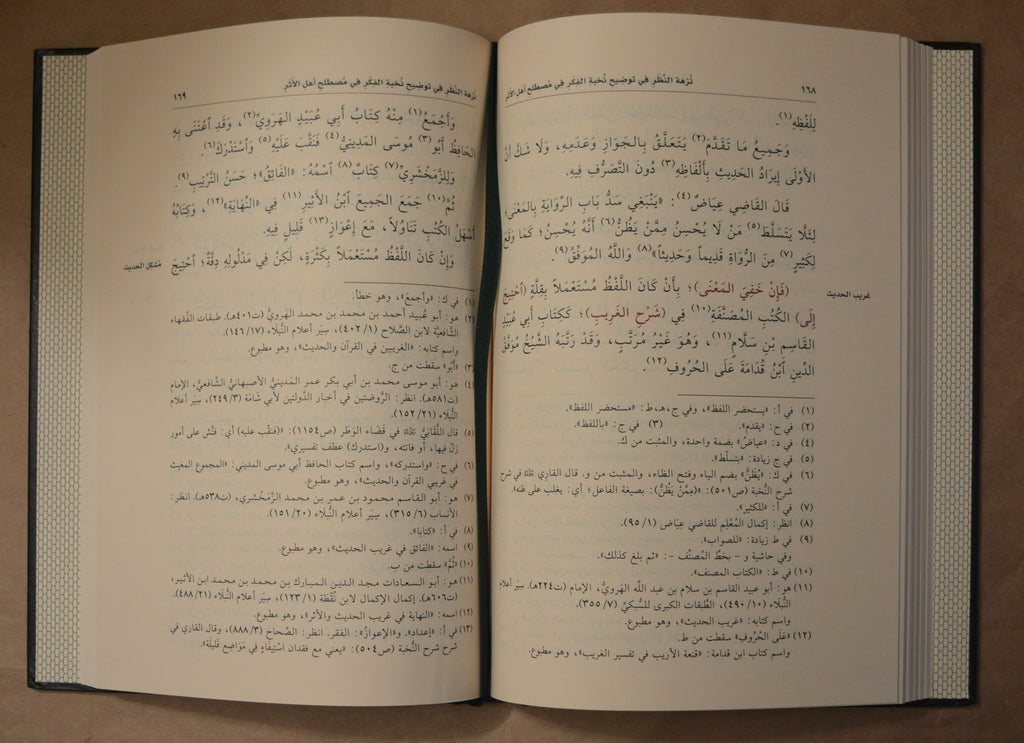 ١٦٨
نُزهة النَّظَرِ فِي توضِيحِ نُخبةِ الفِكَرِ فِي مُصطلحِ أهلِ الأَثَرِ
لِلَفْظِهِ(١).
وَجَمِيعُ مَا تَقَدَّمَ(٢) يَتَعَلَّقُ بِالجَوَازِ وَعَدَمِهِ، وَلَا شَكَّ أَنَّ
الأَوْلَى إِيرَادُ الحَدِيثِ بِأَلْفَاظِهِ(٣) دُونَ التَّصَرُّفِ فِيهِ.
قَالَ القَاضِي عِيَاضٌ(٤): «يَنْبَغِي سَدُّ بَابِ الرِّوَايَةِ بِالمَعْنَى؛
لِئَلَّا يَتَسَلَّطَ(٥) مَنْ لَا يُحْسِنُ مِمَّنْ يَظُنُّ(٦) أَنَّهُ يُحْسِنُ؛ كَمَا وَقَعَ
لِكَثِيرٍ(٧) مِنَ الرُّوَاةِ قَدِيماً وَحَدِيثاً»(٨) وَاللَّهُ المُوَفِّقُ(٩).
غريب الحديث
(فَإِنْ خَفِيَ المَعْنَى)؛ بِأَنْ كَانَ اللَّفْظُ مُسْتَعْمَلاً بِقِلَّةٍ (ٱحْتِيجَ
إِلَى) الكُتُبِ المُصَنَّفَةِ(١٠) فِي (شَرْحِ الغَرِيبِ)؛ كَكِتَابِ أَبِي عُبَيْدٍ
القَاسِمِ بْنِ سَلَّامٍ(١١)، وَهُوَ غَيْرُ مُرَتَّبٍ، وَقَدْ رَتَّبَهُ الشَّيْخُ مُوَفَّقُ
الدِّينِ ٱبْنُ قُدَامَةَ عَلَى الحُرُوفِ(١٢).
(١) في أ: «يستحضر اللفظ»، وفي ج،هـ،ط: «مستحضر اللفظ».
(٢) في ح: «يقدم». (٣) في ج: «باللفظ».
(٤) في د: «عياضُ» بضمة واحدة، والمثبت من ك.
(٥) في ج زيادة: «بتسلُّط».
(٦) في ك: «يُظَنُّ» بضم الياء وفتح الظاء، والمثبت من و. قال القاري ﷺ في شرح
شرح النُّخبة (ص٥٠١): «(مِمَّنْ يَظُنُّ): بصيغة الفاعل؛ أي: يغلب على ظنه».
(٧) في أ: «للكثير».
(٨) انظر: إكمال المُعْلِم للقاضي عِيَاض (١/ ٩٥).
(٩) في ط زيادة: «للصواب».
وفي حاشية و - بخطِّ المُصنِّف -: «ثم بلغ كذلك».
(١٠) في ط: «الكتاب المصنف».
(١١) هو: أبو عبيد القاسم بن سلام بن عبد اللَّه الهَرَويُّ، الإمام (ت٢٢٤هـ). سِيَر أعلام
النُّبَلاء (١٠/ ٤٩٠)، الطَّبقات الكبرى للسُّبكيِّ (٧/ ٣٥٥).
واسم كتابه: «غريب الحديث»، وهو مطبوع.
(١٢) «عَلَى الحُرُوفِ» سقطت من ط.
واسم كتاب ابن قدامة: «قنعة الأريب في تفسير الغريب»، وهو مطبوع.
نُزهة النَّظَرِ فِي توضِيحِ نُخبةِ الفِكَرِ فِي مُصطلحِ أهلِ الأَثَرِ
١٦٩
وَأَجْمَعُ(١) مِنْهُ كِتَابُ أَبِي عُبَيْدٍ الهَرَوِيِّ(٢)، وَقَدِ ٱعْتَنَى بِهِ
الحَافِظُ أَبُو(٣) مُوسَى المَدِينِيُّ(٤) فَنَقَّبَ عَلَيْهِ(٥) وَٱسْتَدْرَكَ(٦).
وَلِلزَّمَخْشَرِيِّ(٧) كِتَابٌ(٨) ٱسْمُهُ: «الفَائِقُ»؛ حَسَنُ التَّرْتِيبِ(٩).
ثُمَّ(١٠) جَمَعَ الجَمِيعَ ٱبْنُ الأَثِيرِ(١١) فِي «النِّهَايَةِ»(١٢)، وَكِتَابُهُ
أَسْهَلُ الكُتُبِ تَنَاوُلاً، مَعَ إِعْوَازٍ(١٣) قَلِيلٍ فِيهِ.
وَإِنْ كَانَ اللَّفْظُ مُسْتَعْمَلاً بِكَثْرَةٍ، لَكِنْ فِي مَدْلُولِهِ دِقَّةٌ؛ ٱحْتِيجَ
مُشكل الحديث
(١) في ك: «وأجمعَ»، وهو خطأ.
(٢) هو: أبو عُبيد أحمد بن محمد بن محمد الهَرَويُّ (ت٤٠١هـ). طبقات الفقهاء
الشَّافعيَّة لابن الصَّلاح (١/ ٤٠٢)، سِيَر أعلام النُّبَلاء (١٧/ ١٤٦).
واسم كتابه: «الغريبين في القرآن والحديث»، وهو مطبوع.
(٣) «أَبُو» سقطت من ج.
(٤) هو: أبو موسى محمد بن أبي بكر عمر المَدينيُّ الأصبهانيُّ الشافعيُّ، الإمام
(ت٥٨١هـ). انظر: الرَّوضتين في أخبار الدَّولتين لأبي شَامَة (٣/ ٢٤٩)، سِيَر أعلام
النُّبَلاء (٢١/ ١٥٢).
(٥) قال اللَّقَانِيُّ ﷺ في قَضَاء الوَطَر (ص١١٥٤): «(فنقب عليه) أي: فتَّش على أمور
زلَّ فيها، أو فاتته، و(استدرك) عطف تفسيري».
(٦) في ح: «واستدركه»، واسم كتاب الحافظ أبي موسى المديني: «المجموع المغيث
في غريبي القرآن والحديث»، وهو مطبوع.
(٧) هو: أبو القاسم محمود بن عمر بن محمد الزَّمَخْشَري، (ت٥٣٨هـ). انظر:
الأنساب (٦/ ٣١٥)، سِيَر أعلام النُّبَلاء (٢٠/ ١٥١).
(٨) في أ: «كتابا».
(٩) اسمه: «الفائق في غريب الحديث»، وهو مطبوع.
(١٠) «ثُمَّ» سقطت من ب.
(١١) هو: أبو السعادات مجد الدين المبارك بن محمد بن محمد ابن الأثير،
(ت٦٠٦هـ). إكمال الإكمال لابن نُقْطَة (١/ ١٢٣)، سِيَر أعلام النُّبَلاء (٢١/ ٤٨٨).
(١٢) اسمه: «النهاية في غريب الحديث والأثر»، وهو مطبوع.
(١٣) في أ: «إعداد». و«الإعوازُ»: الفقر. انظر: الصِّحاح (٣/ ٨٨٨)، وقال القاري في
شرح شرح النُّخبة (ص٥٠٤): «يعني مع فقدان اسْتِيفَاءٍ فِي مَوَاضِعَ قَلِيلَة».